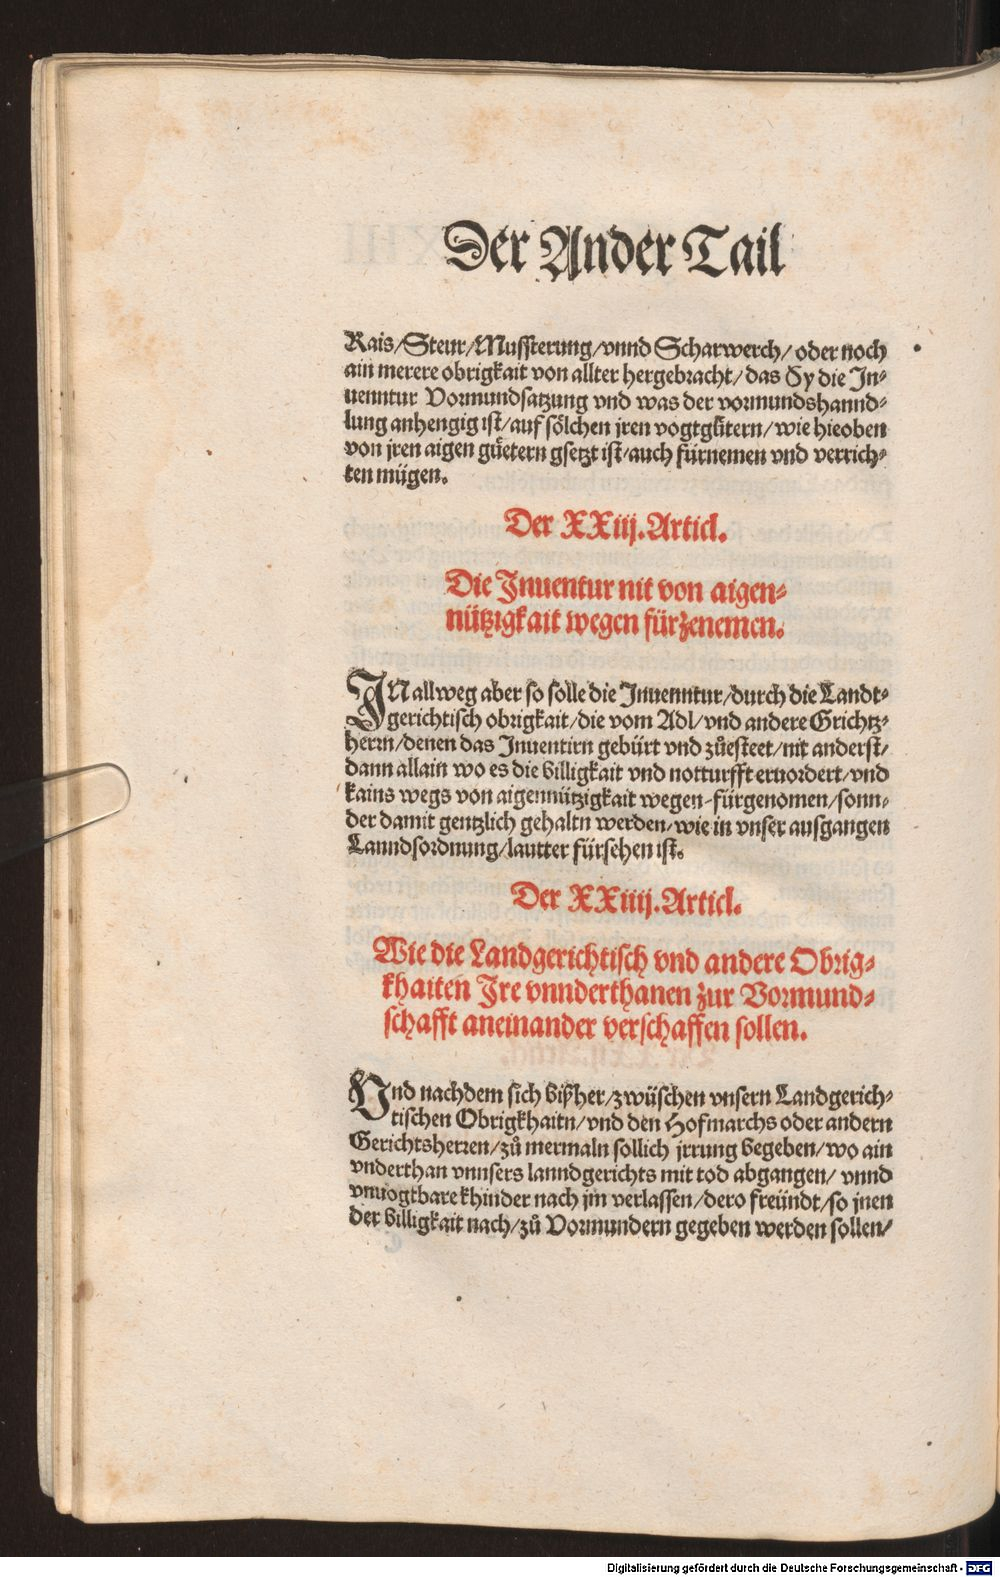 Der Ander Tail
Rais/Steur/Mussterung/vnnd Scharwerch/ oder noch
ain merere obrigkait von allter hergebracht/ das Sy die In-
uenntur Vormundsatzung vnd was der vormundshannd-
lung anhengig ist/auf sölchen jren vogtgütern/wie hieoben
von jren aigen güetern gsetzt ist/auch fürnemen vnd verrich-
ten mügen.
Der XXiij. Articl.
Die Inuentur nit von aigen-
nützigkait wegen fürzenemen.
IN allweg aber so solle die Inuenntur/durch die Landt-
gerichtisch obrigkait/die vom Adl/vnd andere Grichtz-
herrn/denen das Inuentirn gebürt vnd zůesteet/nit anderst/
dann allain wo es die billigkait vnd notturfft eruordert/vnd
kains wegs von aigennützigkait wegen fürgenomen/sonn-
der damit gentzlich gehaltn werden/wie in vnser ausgangen
Lanndsordnung/lautter fürsehen ist.
Der XXiiij. Articl.
Wie die Landgerichtisch vnd andere Obrig-
khaiten Ire vnnderthanen zur Vormund-
schafft aneinander verschaffen sollen.
Vnd nachdem sich bißher/zwüschen vnsern Landgerich-
tischen Obrigkhaitn/vnd den Hofmarchs oder andern
Gerichtsherren/zů mermaln sollich jrrung begeben/wo ain
vnderthan vnnsers lanndgerichts mit tod abgangen/ vnnd
vnuogtbare khinder nach jm verlassen/dero freündt/so jnen
der billigkait nach/zů Vormundern gegeben werden sollen/
Digitalisierung gefördert durch die Deutsche Forschungsgemeinschaft - DFG